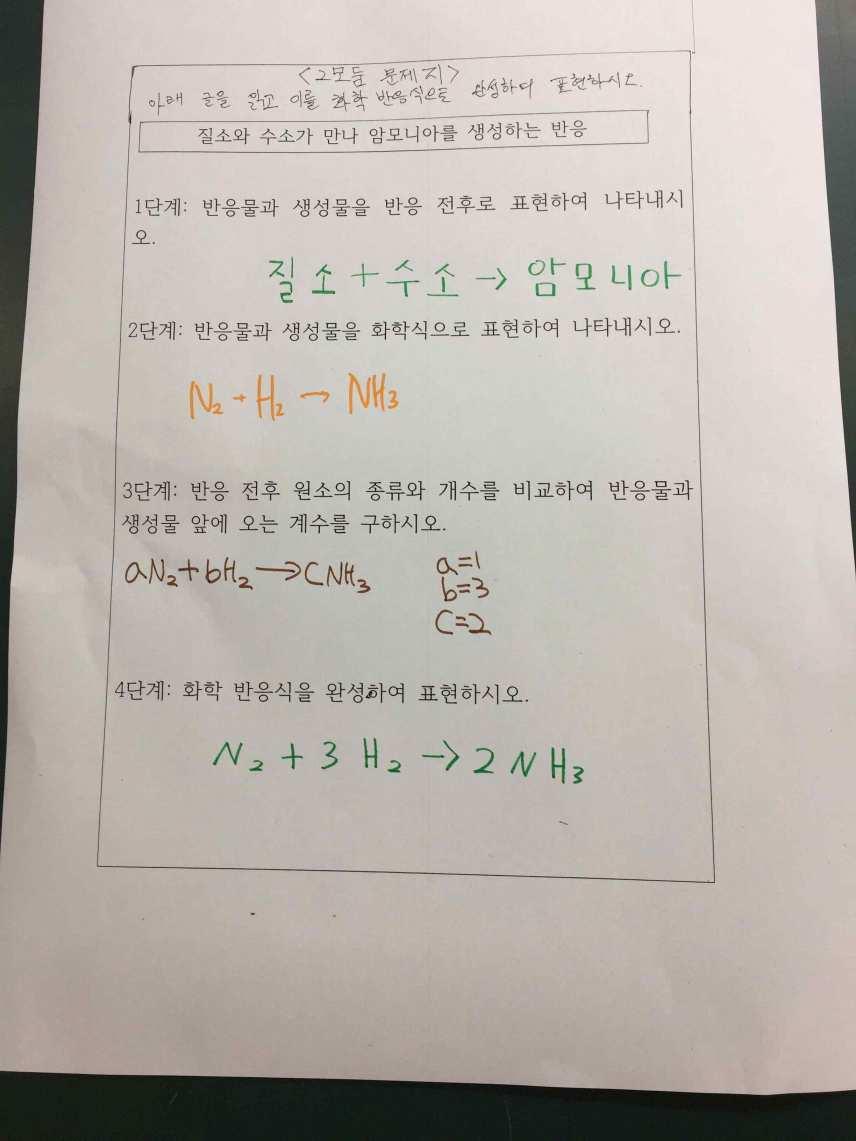 <2모둠 문제지>
아래 글을 읽고 이를 화학 반응식으로 완성하여 표현하시오.
질소와 수소가 만나 암모니아를 생성하는 반응
1단계: 반응물과 생성물을 반응 전후로 표현하여 나타내시
오.
질소+수소→암모니아
2단계: 반응물과 생성물을 화학식으로 표현하여 나타내시오.
N₂+H₂→NH₃
3단계: 반응 전후 원소의 종류와 개수를 비교하여 반응물과
생성물 앞에 오는 계수를 구하시오.
aN₂+bH₂→CNH₃
a=1
b=3
C=2
4단계: 화학 반응식을 완성하여 표현하시오.
N₂+3H₂→2NH₃